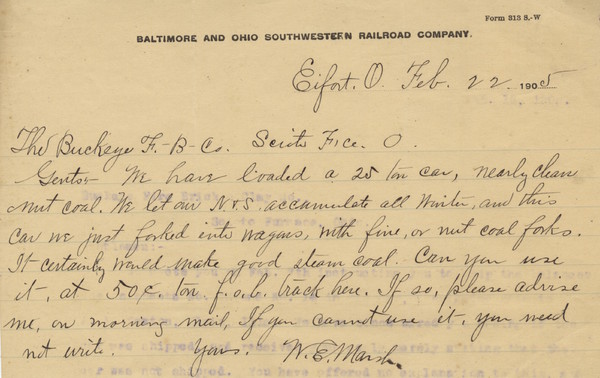 Form 313 S.-W
BALTIMORE AND OHIO SOUTHWESTERN RAILROAD COMPANY.
Eifort. O. Feb. 22 1905
The Buckeye F.-B-Co. Scioto Fce. O.
Gents:- We have loaded a 25 ton car, nearly clean
nut coal. We let our N&S. accumulate all Winter, and this
car we just forked into wagons, with fine, or nut coal forks.
It certainly would make good steam coal. Can you use
it, at 50¢. ton f.o.b. track here. If so, please advise
me, on morning mail, If you cannot use it, you need
not write. Yours. W.E. Marsh